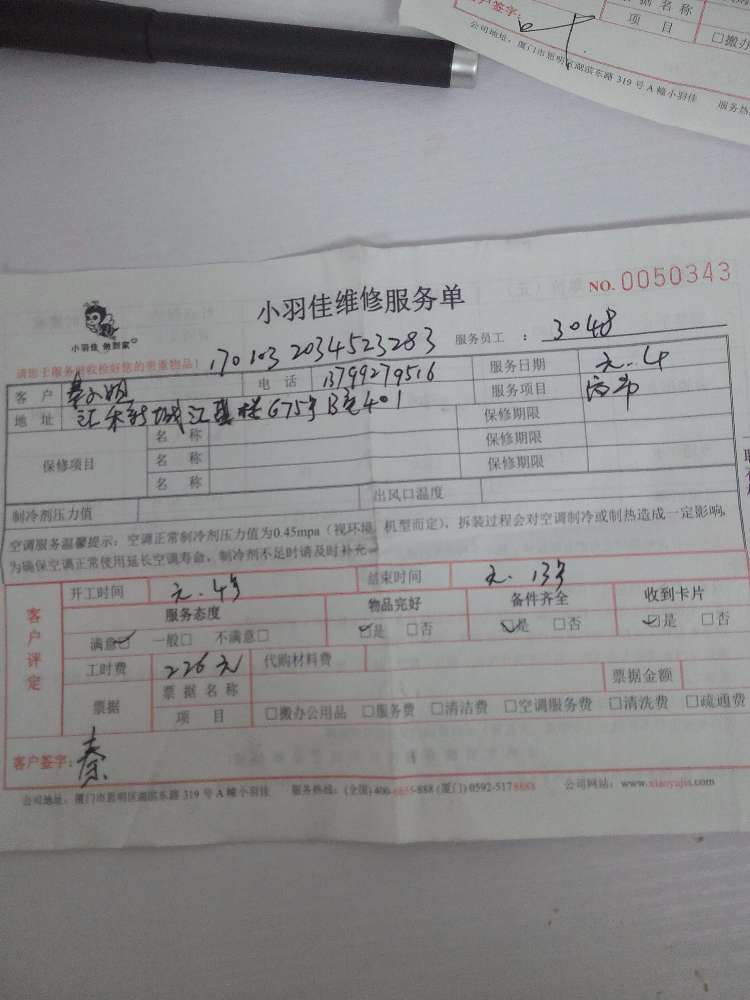 客户签字：
据名称
项 目
□搬办
公司地址：厦门市思明区湖滨东路 319 号 A 幢小羽佳 服务热
小羽佳 做到家
小羽佳维修服务单
NO. 0050343
170103 2034523283
服务员工 ： 3048
请您于服务前收检好您的贵重物品！
客 户 秦小姐 电 话 13799279516 服务日期 元.4
地 址 汇禾新城江 楼675号B 401 服务项目
保修项目
名 称 保修期限
名 称 保修期限
名 称 保修期限
制冷剂压力值 出风口温度
空调服务温馨提示：空调正常制冷剂压力值为0.45mpa（视环境、机型而定），拆装过程会对空调制冷或制热造成一定影响，
为确保空调正常使用延长空调寿命，制冷剂不足时请及时补充。
客户评定
开工时间 元.4号 结束时间 元.13号
服务态度 物品完好 备件齐全 收到卡片
满意☑ 一般□ 不满意□ ☑是 □否 ☑是 □否 ☑是 □否
工时费 226元 代购材料费
票据 票据名称 票据金额
项 目 □搬办公用品 □服务费 □清洁费 □空调服务费 □清洗费 □疏通费
客户签字：秦
公司地址：厦门市思明区湖滨东路 319 号 A 幢小羽佳 服务热线：(全国)400-6635-888 (厦门)0592-5178888 公司网站：www.xiaoyujia.com